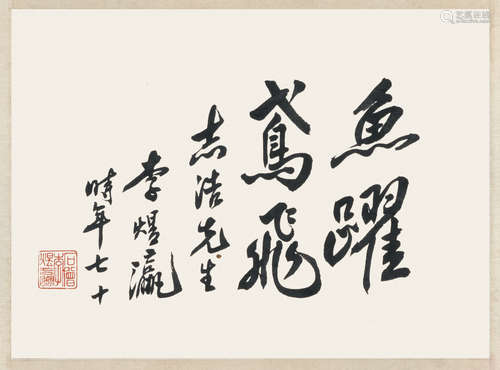 魚躍
鳶飛
志浩先生
李煜瀛
時年七十